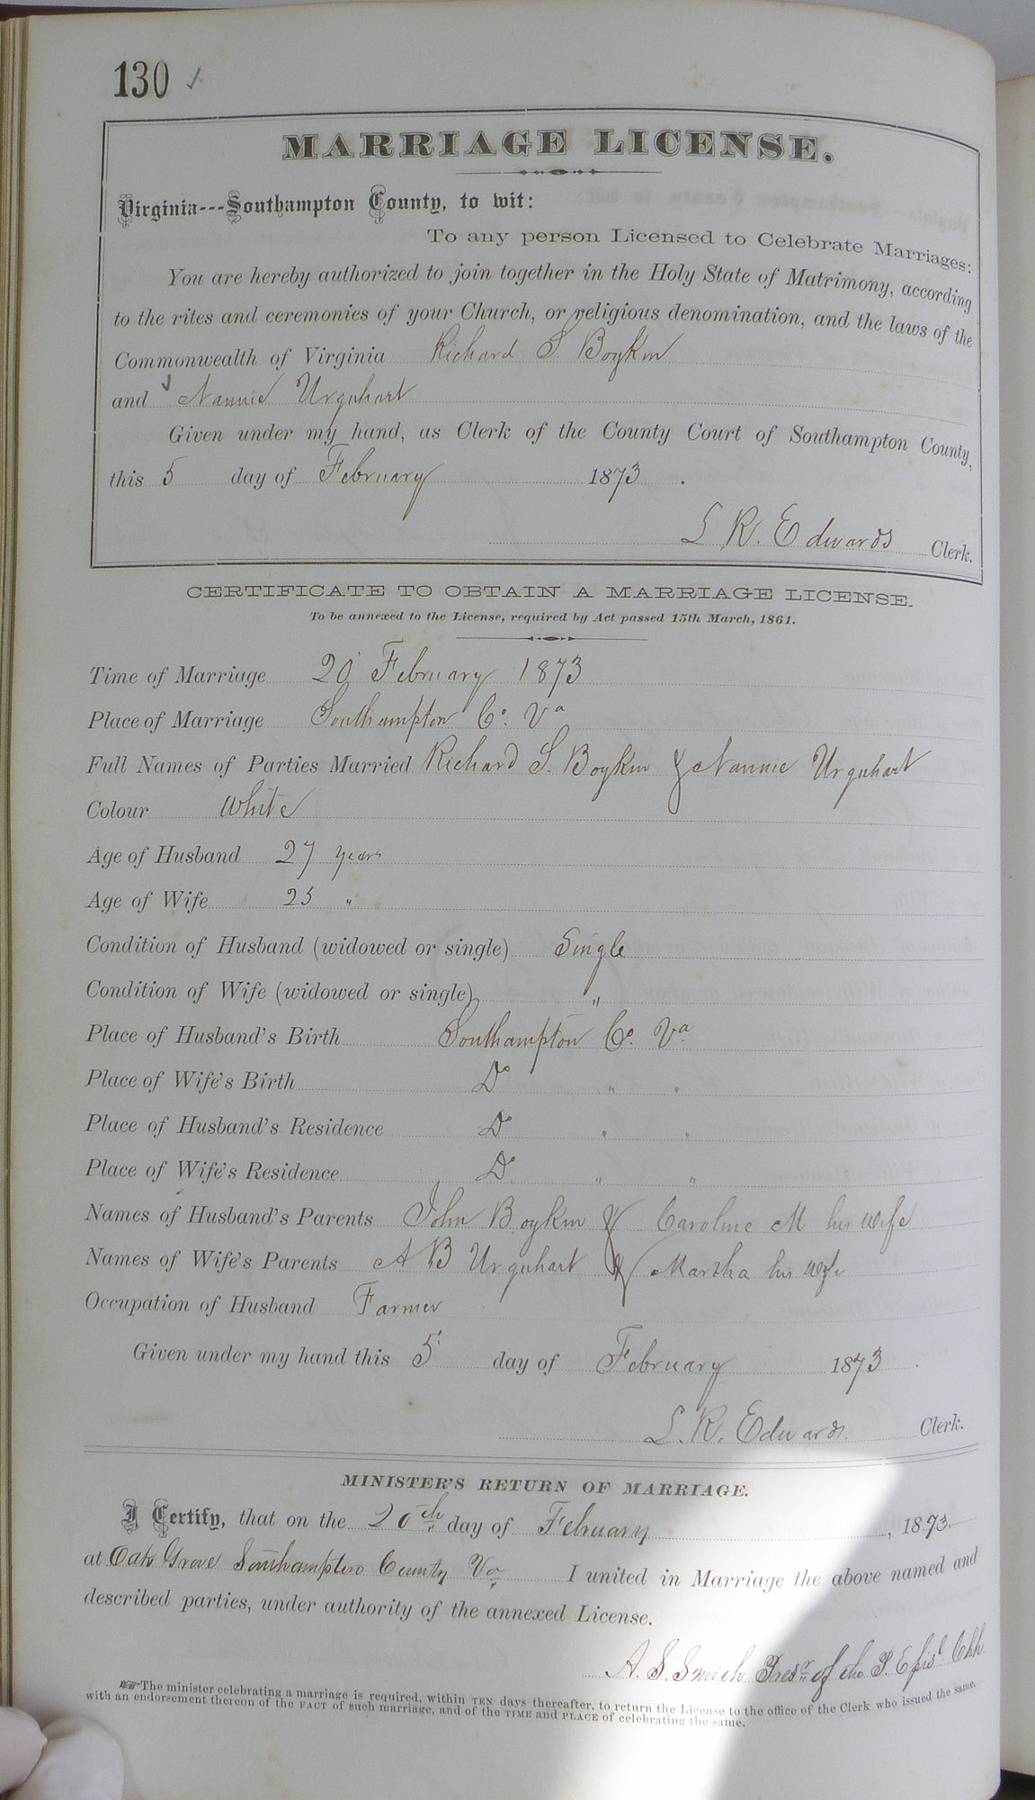 130 ✓
MARRIAGE LICENSE.
Virginia---Southampton County, to wit:
To any person Licensed to Celebrate Marriages:
You are hereby authorized to join together in the Holy State of Matrimony, according
to the rites and ceremonies of your Church, or religious denomination, and the laws of the
Commonwealth of Virginia Richard S. Boykin
and Nannie Urquhart
Given under my hand, as Clerk of the County Court of Southampton County,
this 5 day of February 1873.
L R. Edwards Clerk.
CERTIFICATE TO OBTAIN A MARRIAGE LICENSE.
To be annexed to the License, required by Act passed 15th March, 1861.
Time of Marriage 20 February 1873
Place of Marriage Southampton Co. Va
Full Names of Parties Married Richard S. Boykin & Nannie Urquhart
Colour White
Age of Husband 27 years
Age of Wife 25 "
Condition of Husband (widowed or single) Single
Condition of Wife (widowed or single) "
Place of Husband's Birth Southampton Co. Va.
Place of Wife's Birth Do " "
Place of Husband's Residence Do " "
Place of Wife's Residence Do " "
Names of Husband's Parents John Boykin & Caroline M his wife
Names of Wife's Parents A B Urquhart & Martha his wife
Occupation of Husband Farmer
Given under my hand this 5 day of February 1873.
L. R. Edwards. Clerk.
MINISTER'S RETURN OF MARRIAGE.
I Certify, that on the 20th day of February, 1873.
at Oak Grove Southampton County Va I united in Marriage the above named and
described parties, under authority of the annexed License.
A. S. Smith Presr of the P. Episl. Chh.
The minister celebrating a marriage is required, within TEN days thereafter, to return the License to the office of the Clerk who issued the same,
with an endorsement thereon of the FACT of such marriage, and of the TIME and PLACE of celebrating the same.